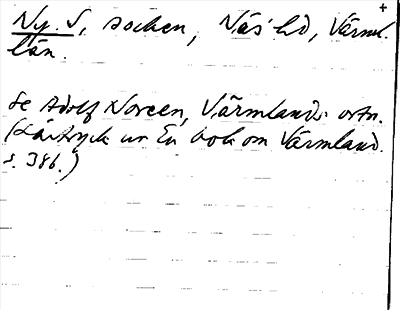 +
Ny. S, socken, Näs' hd, Värml.
län.
Se Adolf Noreen, Värmlands ortn.
(Särtryck ur En bok om Värmland.
s. 386.)